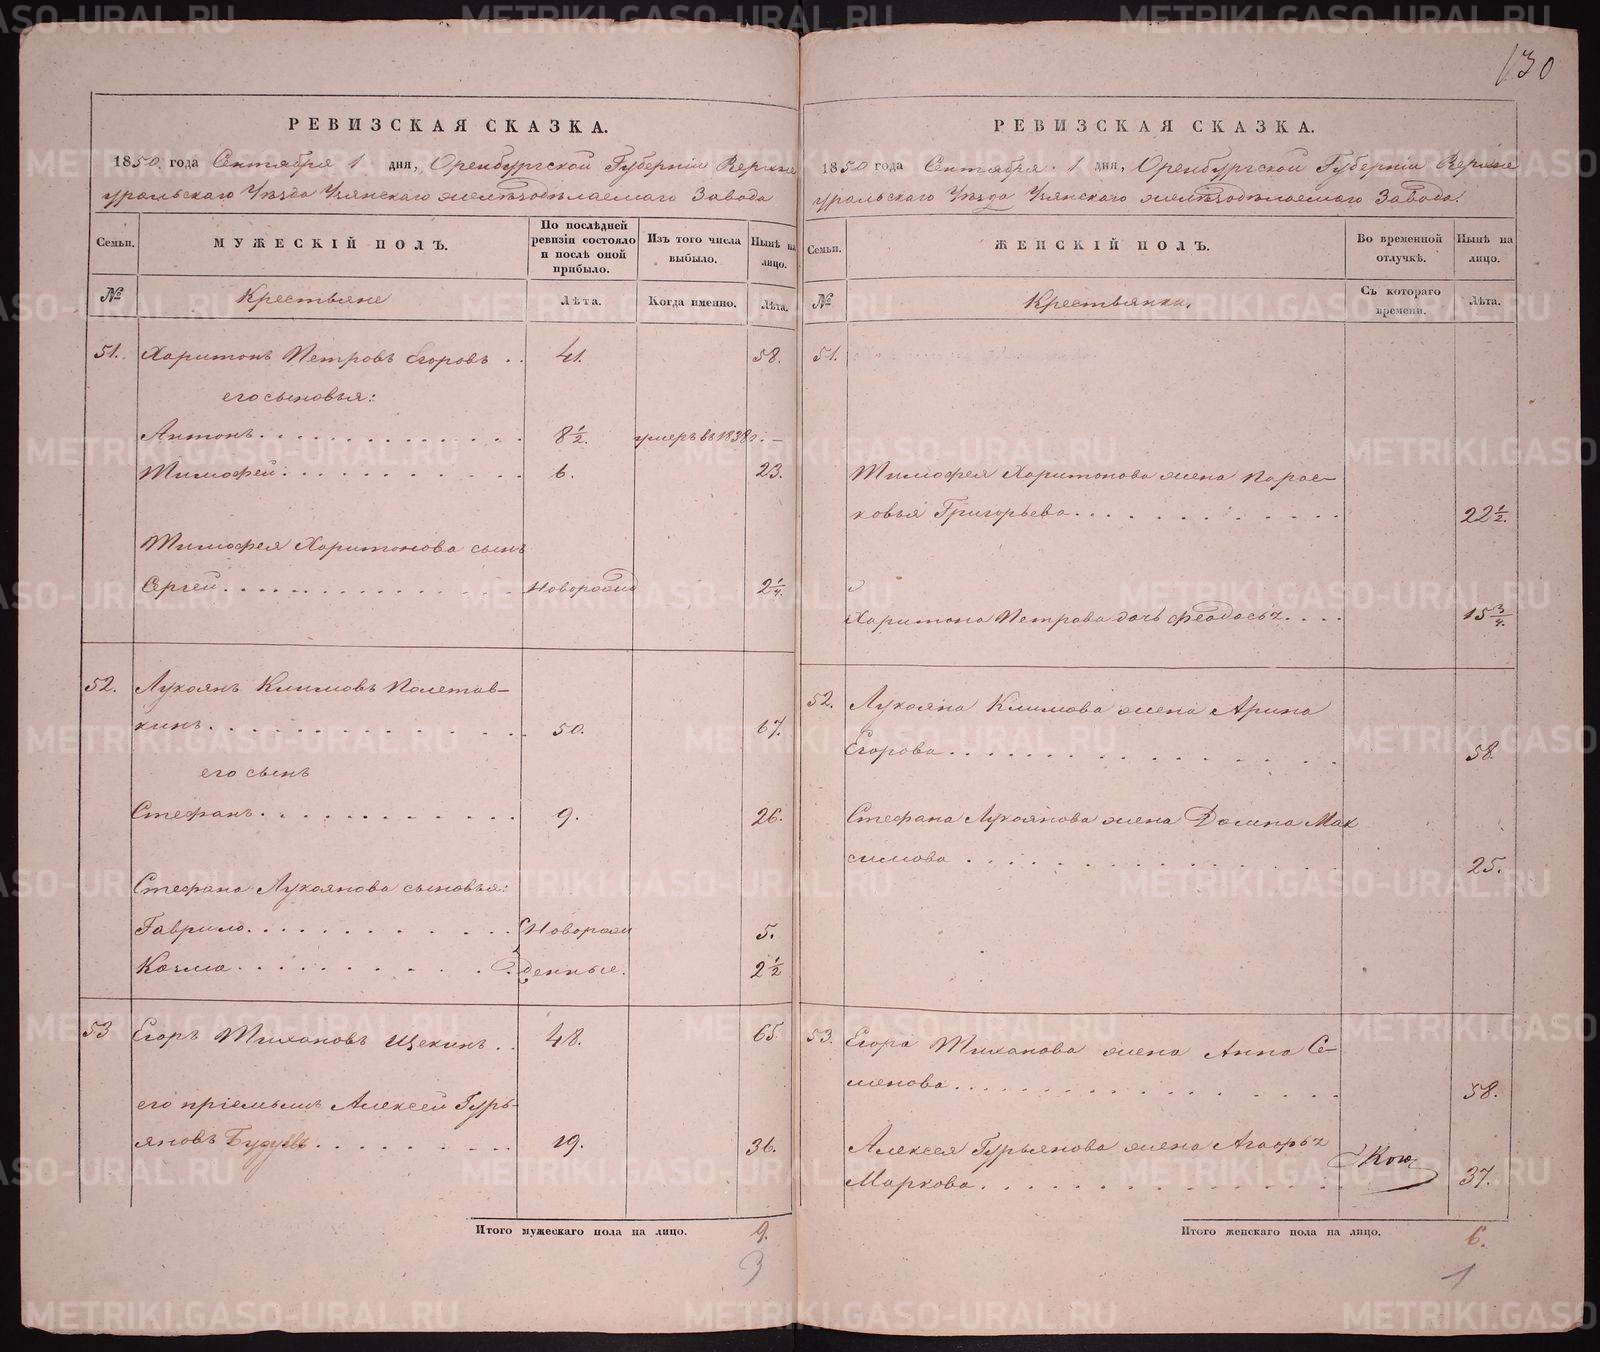 130
РЕВИЗСКАЯ СКАЗКА.
1850 года Сентября 1 дня, Оренбургской Губерніи Верхне
уральскаго Уѣзда Узянскаго желѣзодѣлаемаго Завода
Семьи.
МУЖЕСКІЙ ПОЛЪ.
По послѣдней
ревизіи состояло
и послѣ оной
прибыло.
Изъ того числа
выбыло.
Нынѣ на
лицо.
№
Крестьяне
Лѣта.
Когда именно.
Лѣта.
51. Харитонъ Петровъ Егоровъ . . 41. 58.
его сыновья:
Антонъ. 8 1/2. умеръ въ 1838 г. —
Тимофей. 6. 23.
Тимофея Харитонова сынъ
Сергей. Новорожд 2 1/4.
52. Лукоянъ Климовъ Полетав-
кинъ. 50. 67.
его сынъ
Стефанъ. 9. 26.
Стефана Лукоянова сыновья:
Гаврило. Новорож 5.
Козма. денные. 2 1/2
53 Егоръ Тихановъ Щекинъ. . 48. 65.
его пріемышъ Алексей Гурь-
яновъ 19. 36.
Итого мужескаго пола на лицо. 9.
3
РЕВИЗСКАЯ СКАЗКА.
1850 года Сентября 1 дня, Оренбургской Губерніи Верхне
уральскаго Уѣзда Узянскаго желѣзодѣлаемаго Завода.
Семьи.
ЖЕНСКІЙ ПОЛЪ.
Во временной
отлучкѣ.
Нынѣ на
лицо.
№
Крестьянки.
Съ котораго
времени.
Лѣта.
51.
Тимофея Харитонова жена Парас-
ковья Григорьева. 22 1/2.
Харитона Петрова дочь Феодосья. 15 3/4.
52. Лукояна Климова жена Арина
Егорова. 58.
Стефана Лукоянова жена Домна Мак
симова. 25.
53. Егора Тиханова жена Анна Се-
менова. 58.
Алексея Гурьянова жена Агафья
Маркова. 37.
Итого женскаго пола на лицо. 6.
1
METRIKI.GASO-URAL.RU